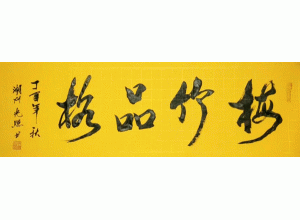 梅竹品格
丁酉年秋